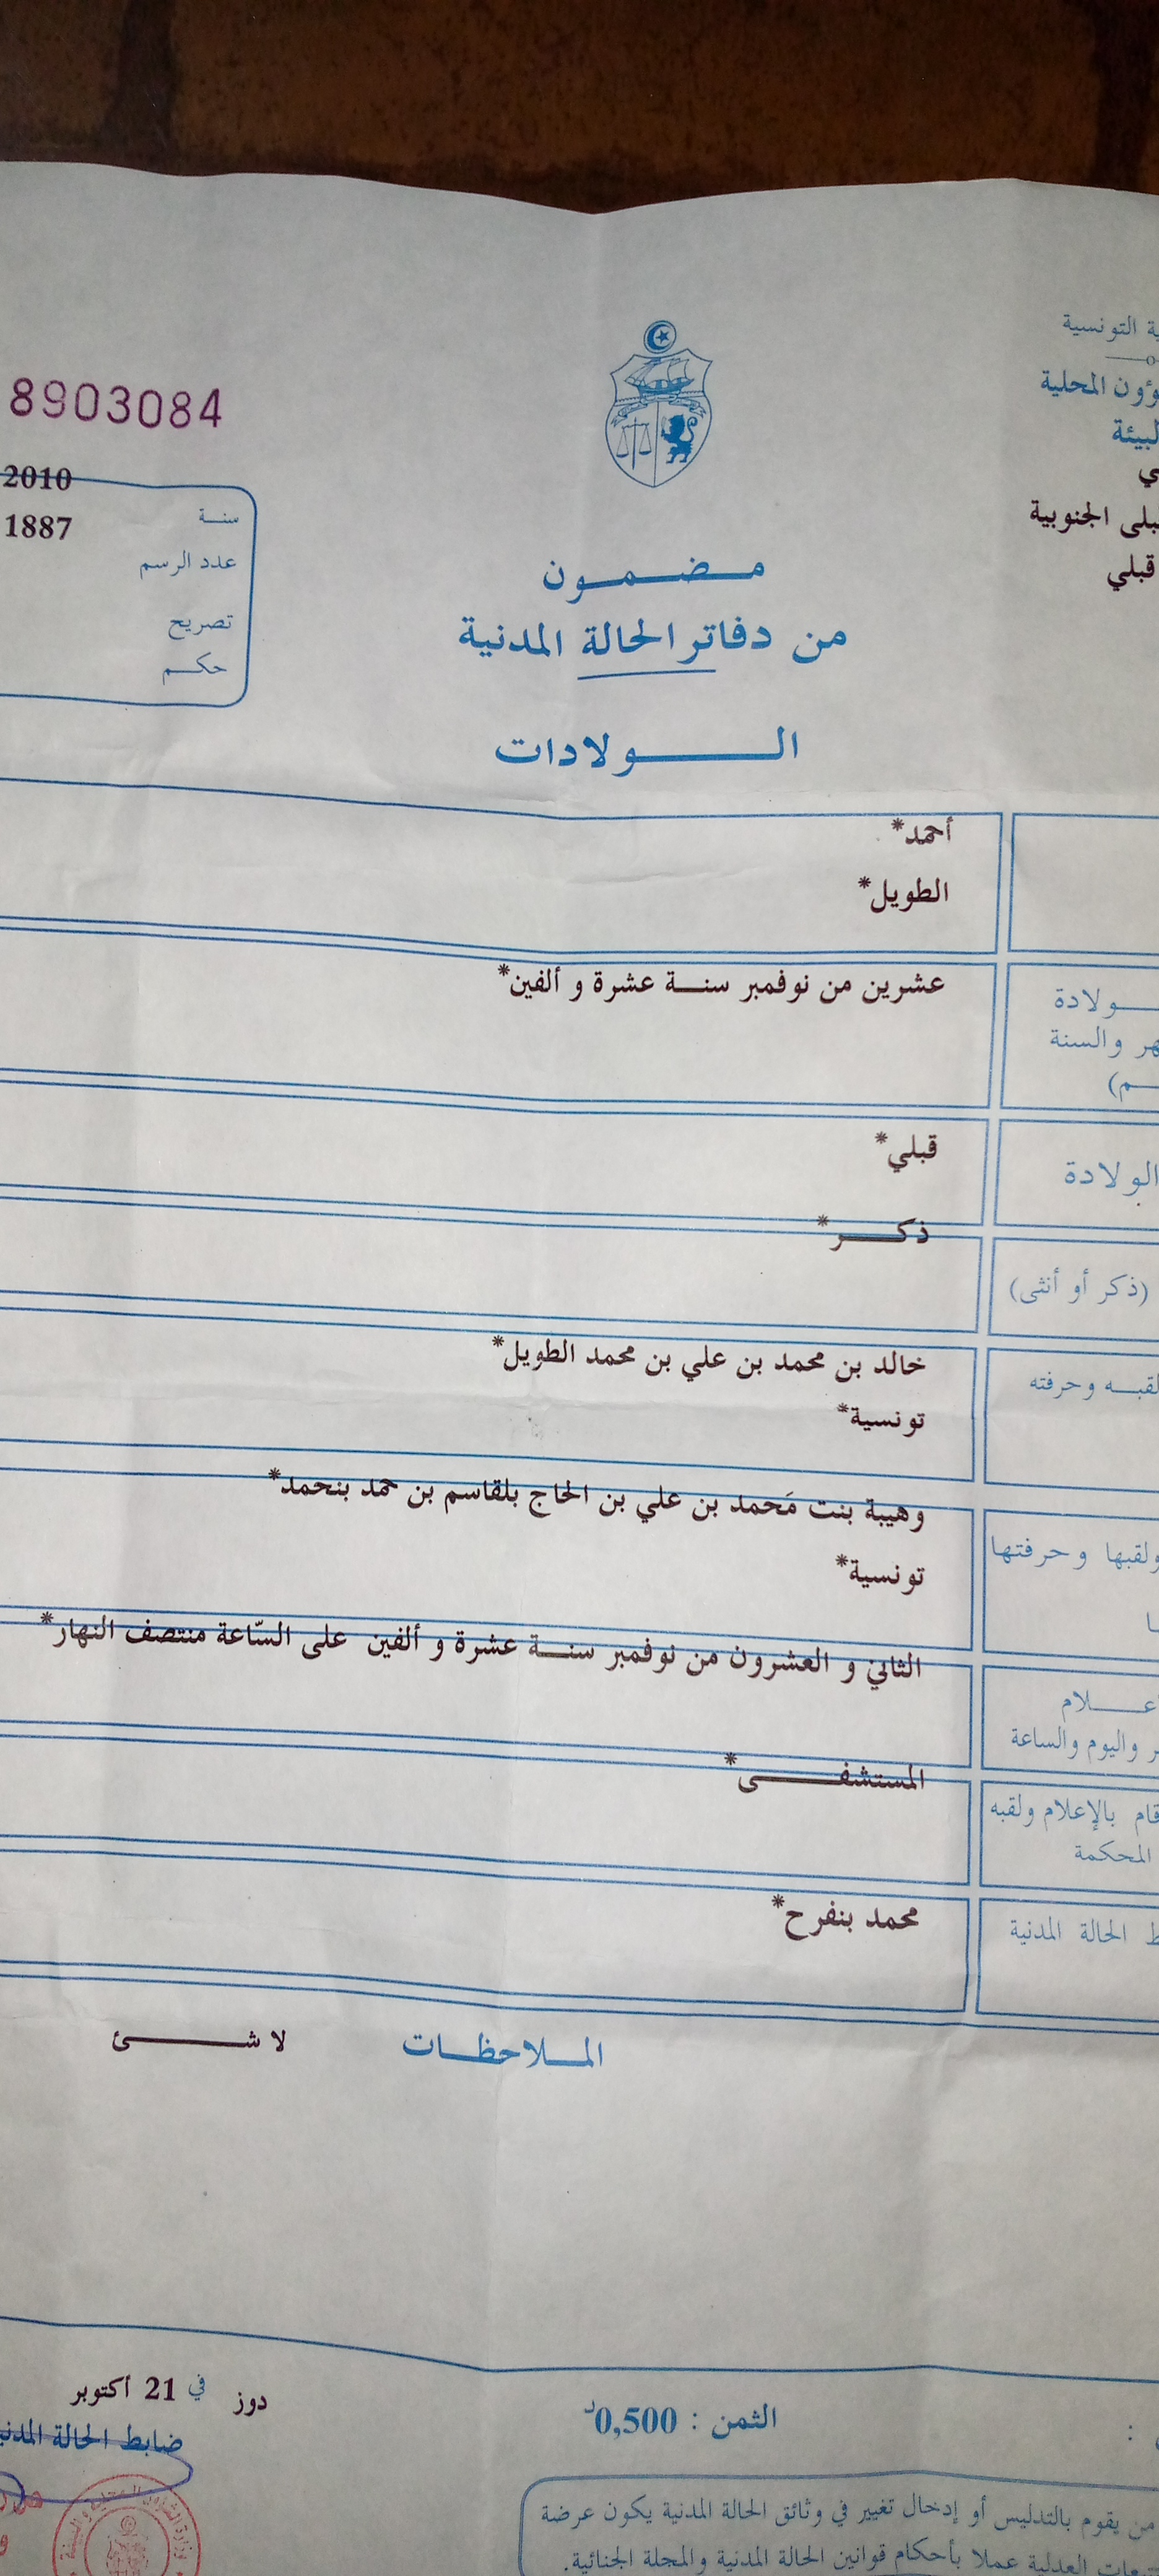 التونسية
المحلية
الجنوبية
قبلي
8903084
2010
1887
سنة
عدد الرسم
تصريح
حكم
مضمون
من دفاتر الحالة المدنية
الولادات
أحمد*
الطويل*
عشرين من نوفمبر سنة عشرة و ألفين*
ولادة
والسنة
قبلي*
الولادة
ذكر*
(ذكر أو أنثى)
خالد بن محمد بن علي بن محمد الطويل*
وحرفته
تونسية*
وهيبة بنت مَحمد بن علي بن الحاج بلقاسم بن حمد بنحمد*
ولقبها وحرفتها
تونسية*
الثاني و العشرون من نوفمبر سنة عشرة و ألفين على السّاعة منتصف النهار*
واليوم والساعة
المستشفى*
قام بالإعلام ولقبه
المحكمة
محمد بنفرح*
الحالة المدنية
الملاحظات لا شئ
دوز في 21 أكتوبر
الثمن : 0,500د
ضابط الحالة
من يقوم بالتدليس أو إدخال تغيير في وثائق الحالة المدنية يكون عرضة
العدلية عملا بأحكام قوانين الحالة المدنية والمجلة الجنائية.